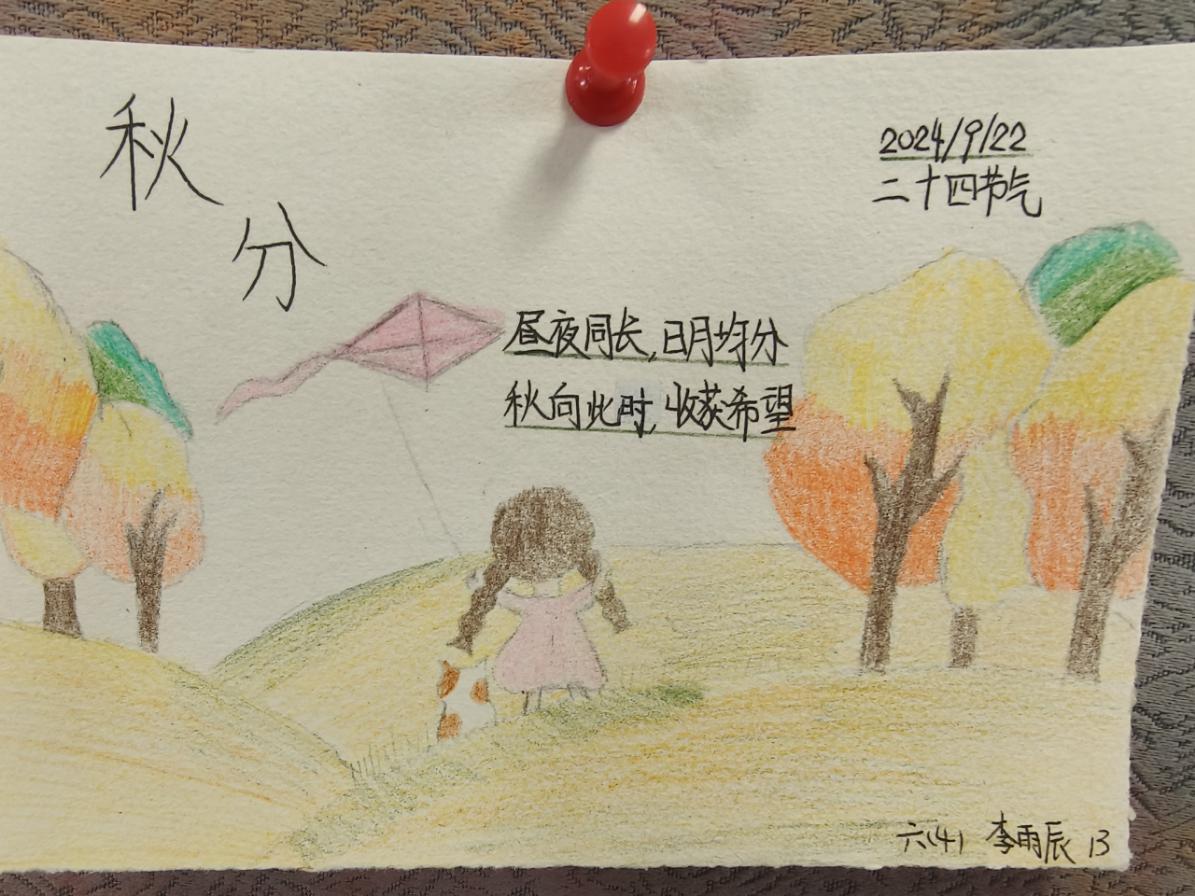 秋分
2024/9/22
二十四节气
昼夜同长,日月均分
秋向此时,收获希望
六(4) 李雨辰 13